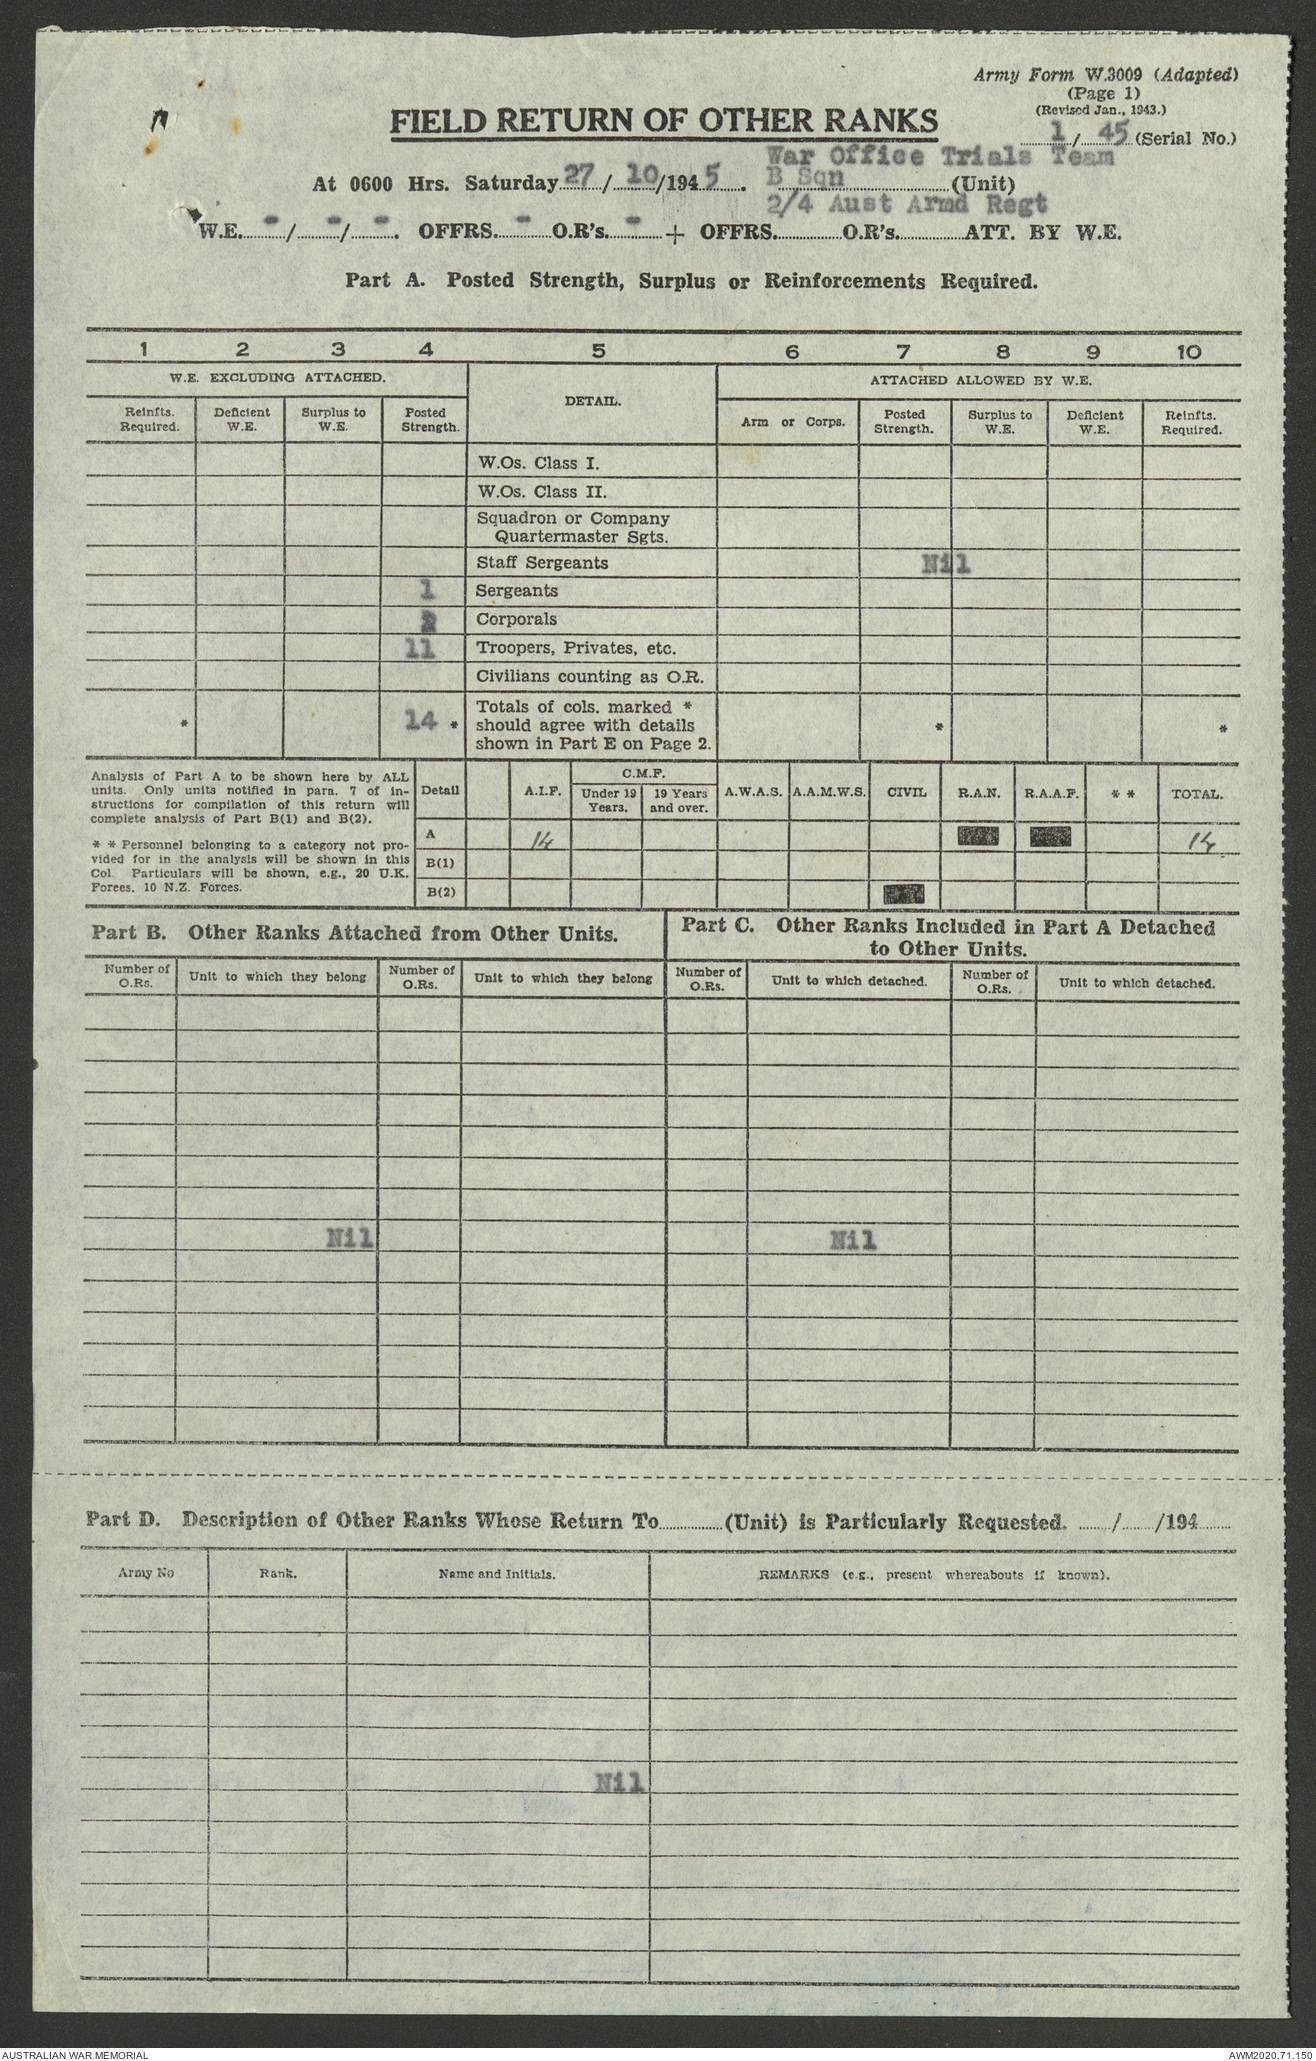 Army Form W.3009 (Adapted)
(Page 1)
(Revised Jan., 1943.)
FIELD RETURN OF OTHER RANKS
1/45 (Serial No.)
War Office Trials Team
At 0600 Hrs. Saturday 27/10/1945. B Sqn (Unit)
2/4 Aust Armd Regt
W.E. - / - / - . OFFRS. - O.R's. - + OFFRS. O.R's. ATT. BY W.E.
Part A. Posted Strength, Surplus or Reinforcements Required.
1 2 3 4 5 6 7 8 9 10
W.E. EXCLUDING ATTACHED. DETAIL. ATTACHED ALLOWED BY W.E.
Reinfts. Required. Deficient W.E. Surplus to W.E. Posted Strength. Arm or Corps. Posted Strength. Surplus to W.E. Deficient W.E. Reinfts. Required.
W.Os. Class I.
W.Os. Class II.
Squadron or Company
Quartermaster Sgts.
Staff Sergeants Nil
1 Sergeants
2 Corporals
11 Troopers, Privates, etc.
Civilians counting as O.R.
Totals of cols. marked *
* 14 * should agree with details * *
shown in Part E on Page 2.
Analysis of Part A to be shown here by ALL
units. Only units notified in para. 7 of in-
structions for compilation of this return will
complete analysis of Part B(1) and B(2).
* * Personnel belonging to a category not pro-
vided for in the analysis will be shown in this
Col. Particulars will be shown, e.g., 20 U.K.
Forces, 10 N.Z. Forces.
C.M.F.
Detail A.I.F. Under 19 Years. 19 Years and over. A.W.A.S. A.A.M.W.S. CIVIL R.A.N. R.A.A.F. * * TOTAL.
A 14 14
B(1)
B(2)
Part B. Other Ranks Attached from Other Units.
Part C. Other Ranks Included in Part A Detached
to Other Units.
Number of O.Rs. Unit to which they belong Number of O.Rs. Unit to which they belong Number of O.Rs. Unit to which detached. Number of O.Rs. Unit to which detached.
Nil Nil
Part D. Description of Other Ranks Whose Return To (Unit) is Particularly Requested. / /194
Army No Rank. Name and Initials. REMARKS (e.g., present whereabouts if known).
Nil
AUSTRALIAN WAR MEMORIAL AWM2020.71.150